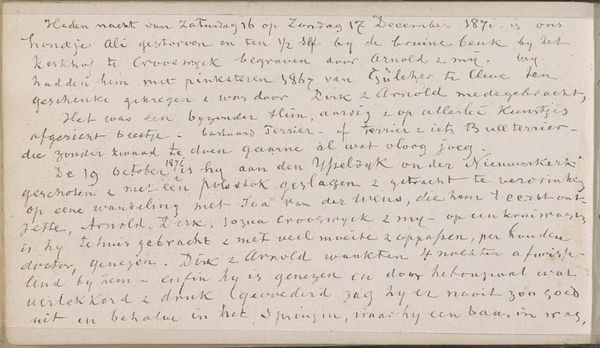 Heden nacht van Zaturdag 16 op Zondag 17 December 1871 is ons
hondje Ali gestorven en ten 1/2 elf by de bruine beuk by het
kerkhof te Crooswyck begraven door Arnold & my. Wy
hadden hem met pinksteren 1867 van Gülcher te Cleve ten
geschenke gekregen & was door Dirk & Arnold medegebracht,
Het was een byzonder slim, aardig & op allerlei kunstjes
afgericht beestje. bastaard Terrier - of terrier & iets Bullterrier -
die zonder kwaad te doen gaarne al wat vloog joeg.
De 19 October 1871 is hy aan den Ysseldyk onder Nieuwerkerk
geschoten & met een polsstok geslagen & getracht te verdrinken
op eene wandeling met Joa van der die hem 't eerst ont-
zette, Arnold, Dirk, Crooswyck & my - op een kruiwagen
is hy te huis gebracht & met veel moeite & oppassen, per honden
doctor, genezen. Dirk & Arnold waakten 4 nachten afwisse-
lend by hem - enfin hy is genezen en door het ongeval wat
& druk gevoederd zag hy er nooit zoo goed
uit en behalve in het springen, waar hy een baas in was,